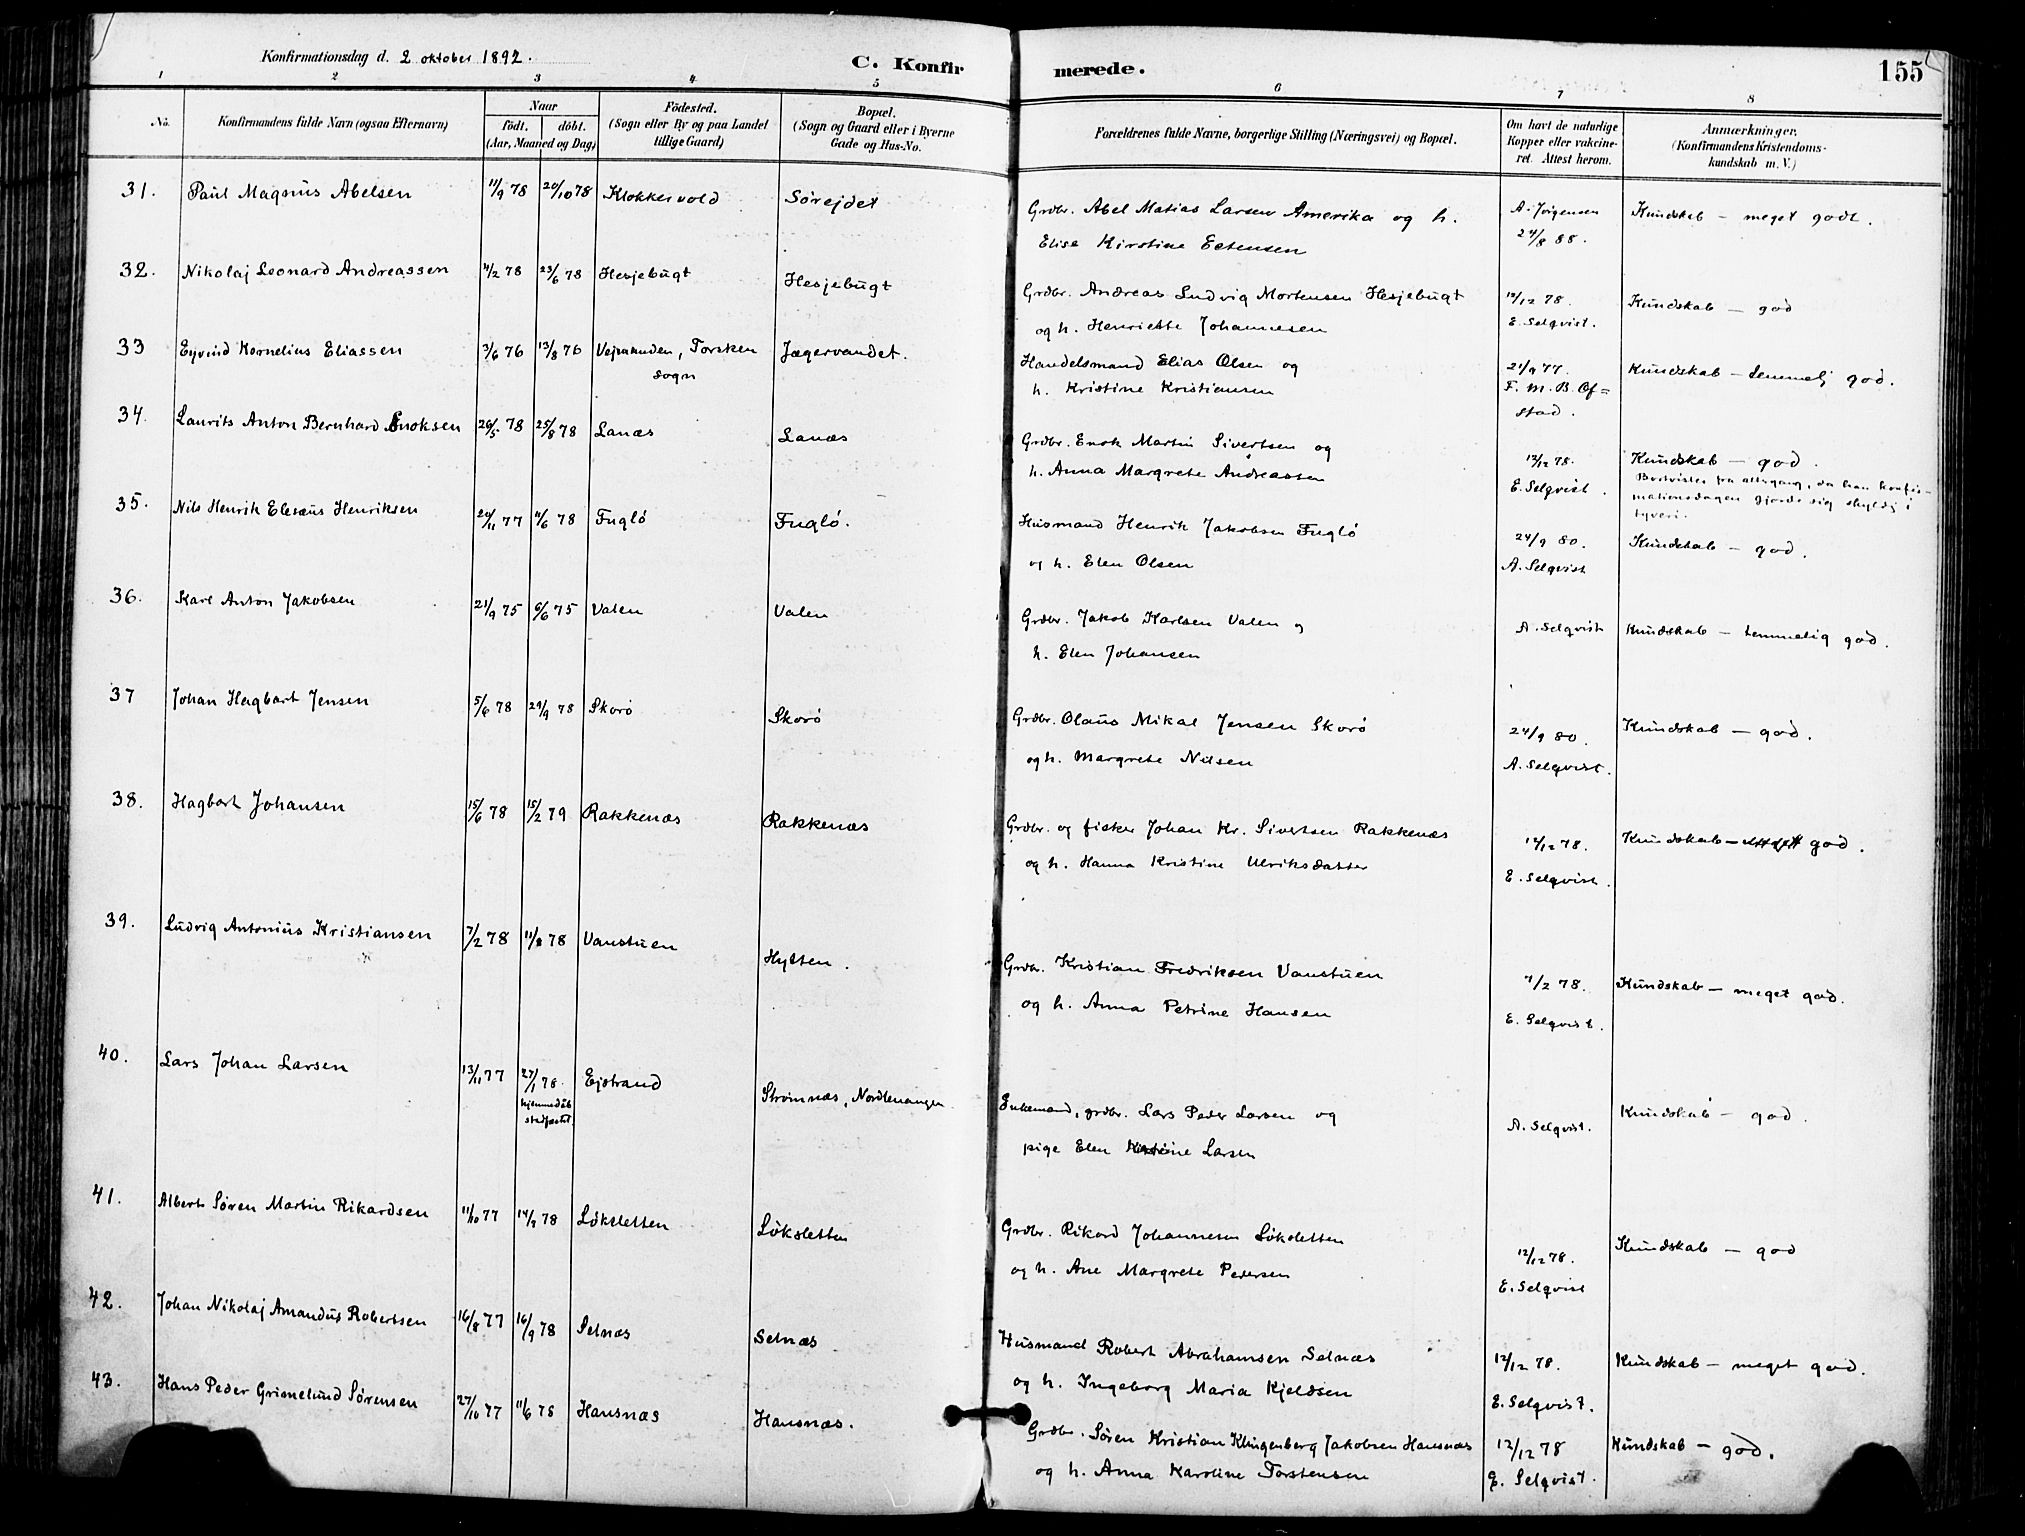 Konfirmationsdag d. 2 oktober 1892.
C. Konfirmerede.
155
1 2 3 4 5 6 7 8
No. Konfirmandens fulde Navn (ogsaa Efternavn)
Naar
födt. döbt.
(Aar, Maaned og Dag)
Födested.
(Sogn eller By og paa Landet
tillige Gaard)
Bopæl.
(Sogn og Gaard eller i Byerne
Gade og Hus-No.
Forældrenes fulde Navne, borgerlige Stilling (Næringsvei) og Bopæl.
Om havt de naturlige
Kopper eller vakcine-
ret. Attest herom.
Anmærkninger.
(Konfirmandens Kristendoms-
kundskab m. V.)
31. Paul Magnus Abelsen 11/9 78 20/10 78 Klokkervold Sørejdet
Grdbr. Abel Matias Larsen Amerika og h.
Elise Kirstine Estensen
A. Jørgensen
24/8 88.
Kundskab – meget godt.
32. Nikolaj Leonard Andreassen 11/2 78 23/6 78 Hesjebugt Hesjebugt
Grdbr. Andreas Ludvig Mortensen Hesjebugt
og h. Henriette Johannesen
12/12 78.
E. Selqvist.
Kundskab – god
33 Eyvind Kornelius Eliassen 3/6 76 13/8 76 Vejsanden, Torsken
sogn
Jægervandet.
Handelsmand Elias Olsen og
h. Kristine Kristiansen
21/9 77.
F. M. B. Of=
stad.
Kundskab – temmelj god.
34. Laurits Anton Bernhard Enoksen 26/5 78 25/8 78 Lanæs Lanæs
Grdbr. Enok Martin Sivertsen og
h. Anna Margrete Andreassen
12/12 78.
E. Selqvist.
Kundskab – god.
Bortvistes fra altergang, da han konfir-
mationsdagen gjorde sig skyldj i
tyveri.
35. Nils Henrik Elesæus Henriksen 20/11 77 11/6 78 Fuglö Fuglö.
Husmand Henrik Jakobsen Fuglö
og h. Elen Olsen
24/9 80.
A. Selqvist
Kundskab – god.
36. Karl Anton Jakobsen 21/9 75 6/6 75 Valen Valen
Grdbr. Jakob Karlsen Valen og
h. Elen Johansen
A. Selqvist
Kundskab – temmelig god.
37 Johan Hagbart Jensen 5/6 78 29/9 78 Skorö Skorö
Grdbr. Olaus Mikal Jensen Skorö
og h. Margrete Nilsen
24/9 80.
A. Selqvist.
Kundskab – god.
38. Hagbart Johansen 15/6 78 15/2 79 Rakkenæs Rakkenæs
Grdbr. og fisker Johan Kr. Sivertsen Rakkenæs
og h. Hanna Kristine Ulriksdatter
12/12 78.
E. Selqvist.
Kundskab – god.
39. Ludvig Antonius Kristiansen 7/2 78 11/8 78 Vanstuen Hylten.
Grdbr. Kristian Fredriksen Vanstuen
og h. Anna Petrine Hansen
7/2 78.
E. Selqvist.
Kundskab – meget god.
40. Lars Johan Larsen 13/11 77 27/1 78.
hjemmedåb
stadfæstet.
Ejstrand Strömnæs, Nordlenangen
Enkemand, grdbr. Lars Peder Larsen og
pige Elen Larsen
A. Selqvist.
Kundskab – god.
41. Albert Søren Martin Rikardsen 11/10 77 14/7 78 Løksletten Løksletten
Grdbr. Rikard Johannesen Løksletten
og h. Ane Margrete Pedersen
12/12 78.
E. Selqvist
Kundskab – god
42. Johan Nikolaj Amandus Robertsen 16/8 77 16/9 78 Selnæs Selnæs
Husmand Robert Abrahamsen Selnæs
og h. Ingeborg Maria Kjeldsen
12/12 78.
E. Selqvist.
Kundskab – meget god.
43. Hans Peder Grimelund Sørensen 27/10 77 11/6 78 Hansnæs Hansnæs.
Grdbr. Søren Kristian Klingenberg Jakobsen Hansnæs
og h. Anna Karoline Torstensen
12/12 78
E. Selqvist.
Kundskab – god.